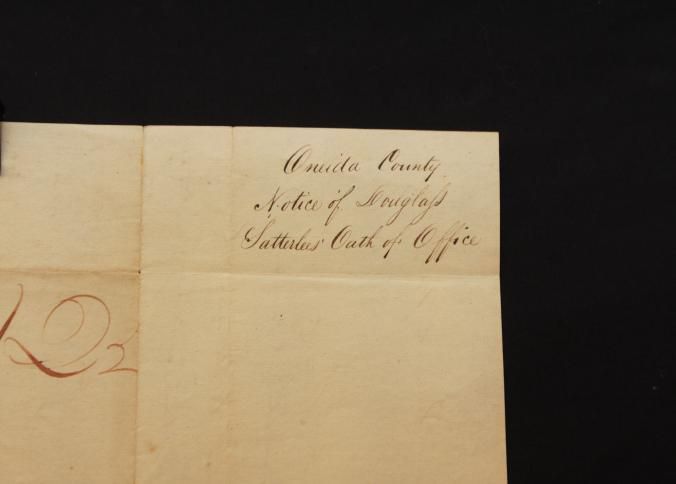 Oneida County
Notice of Douglaſs
Satterlees' Oath of Office